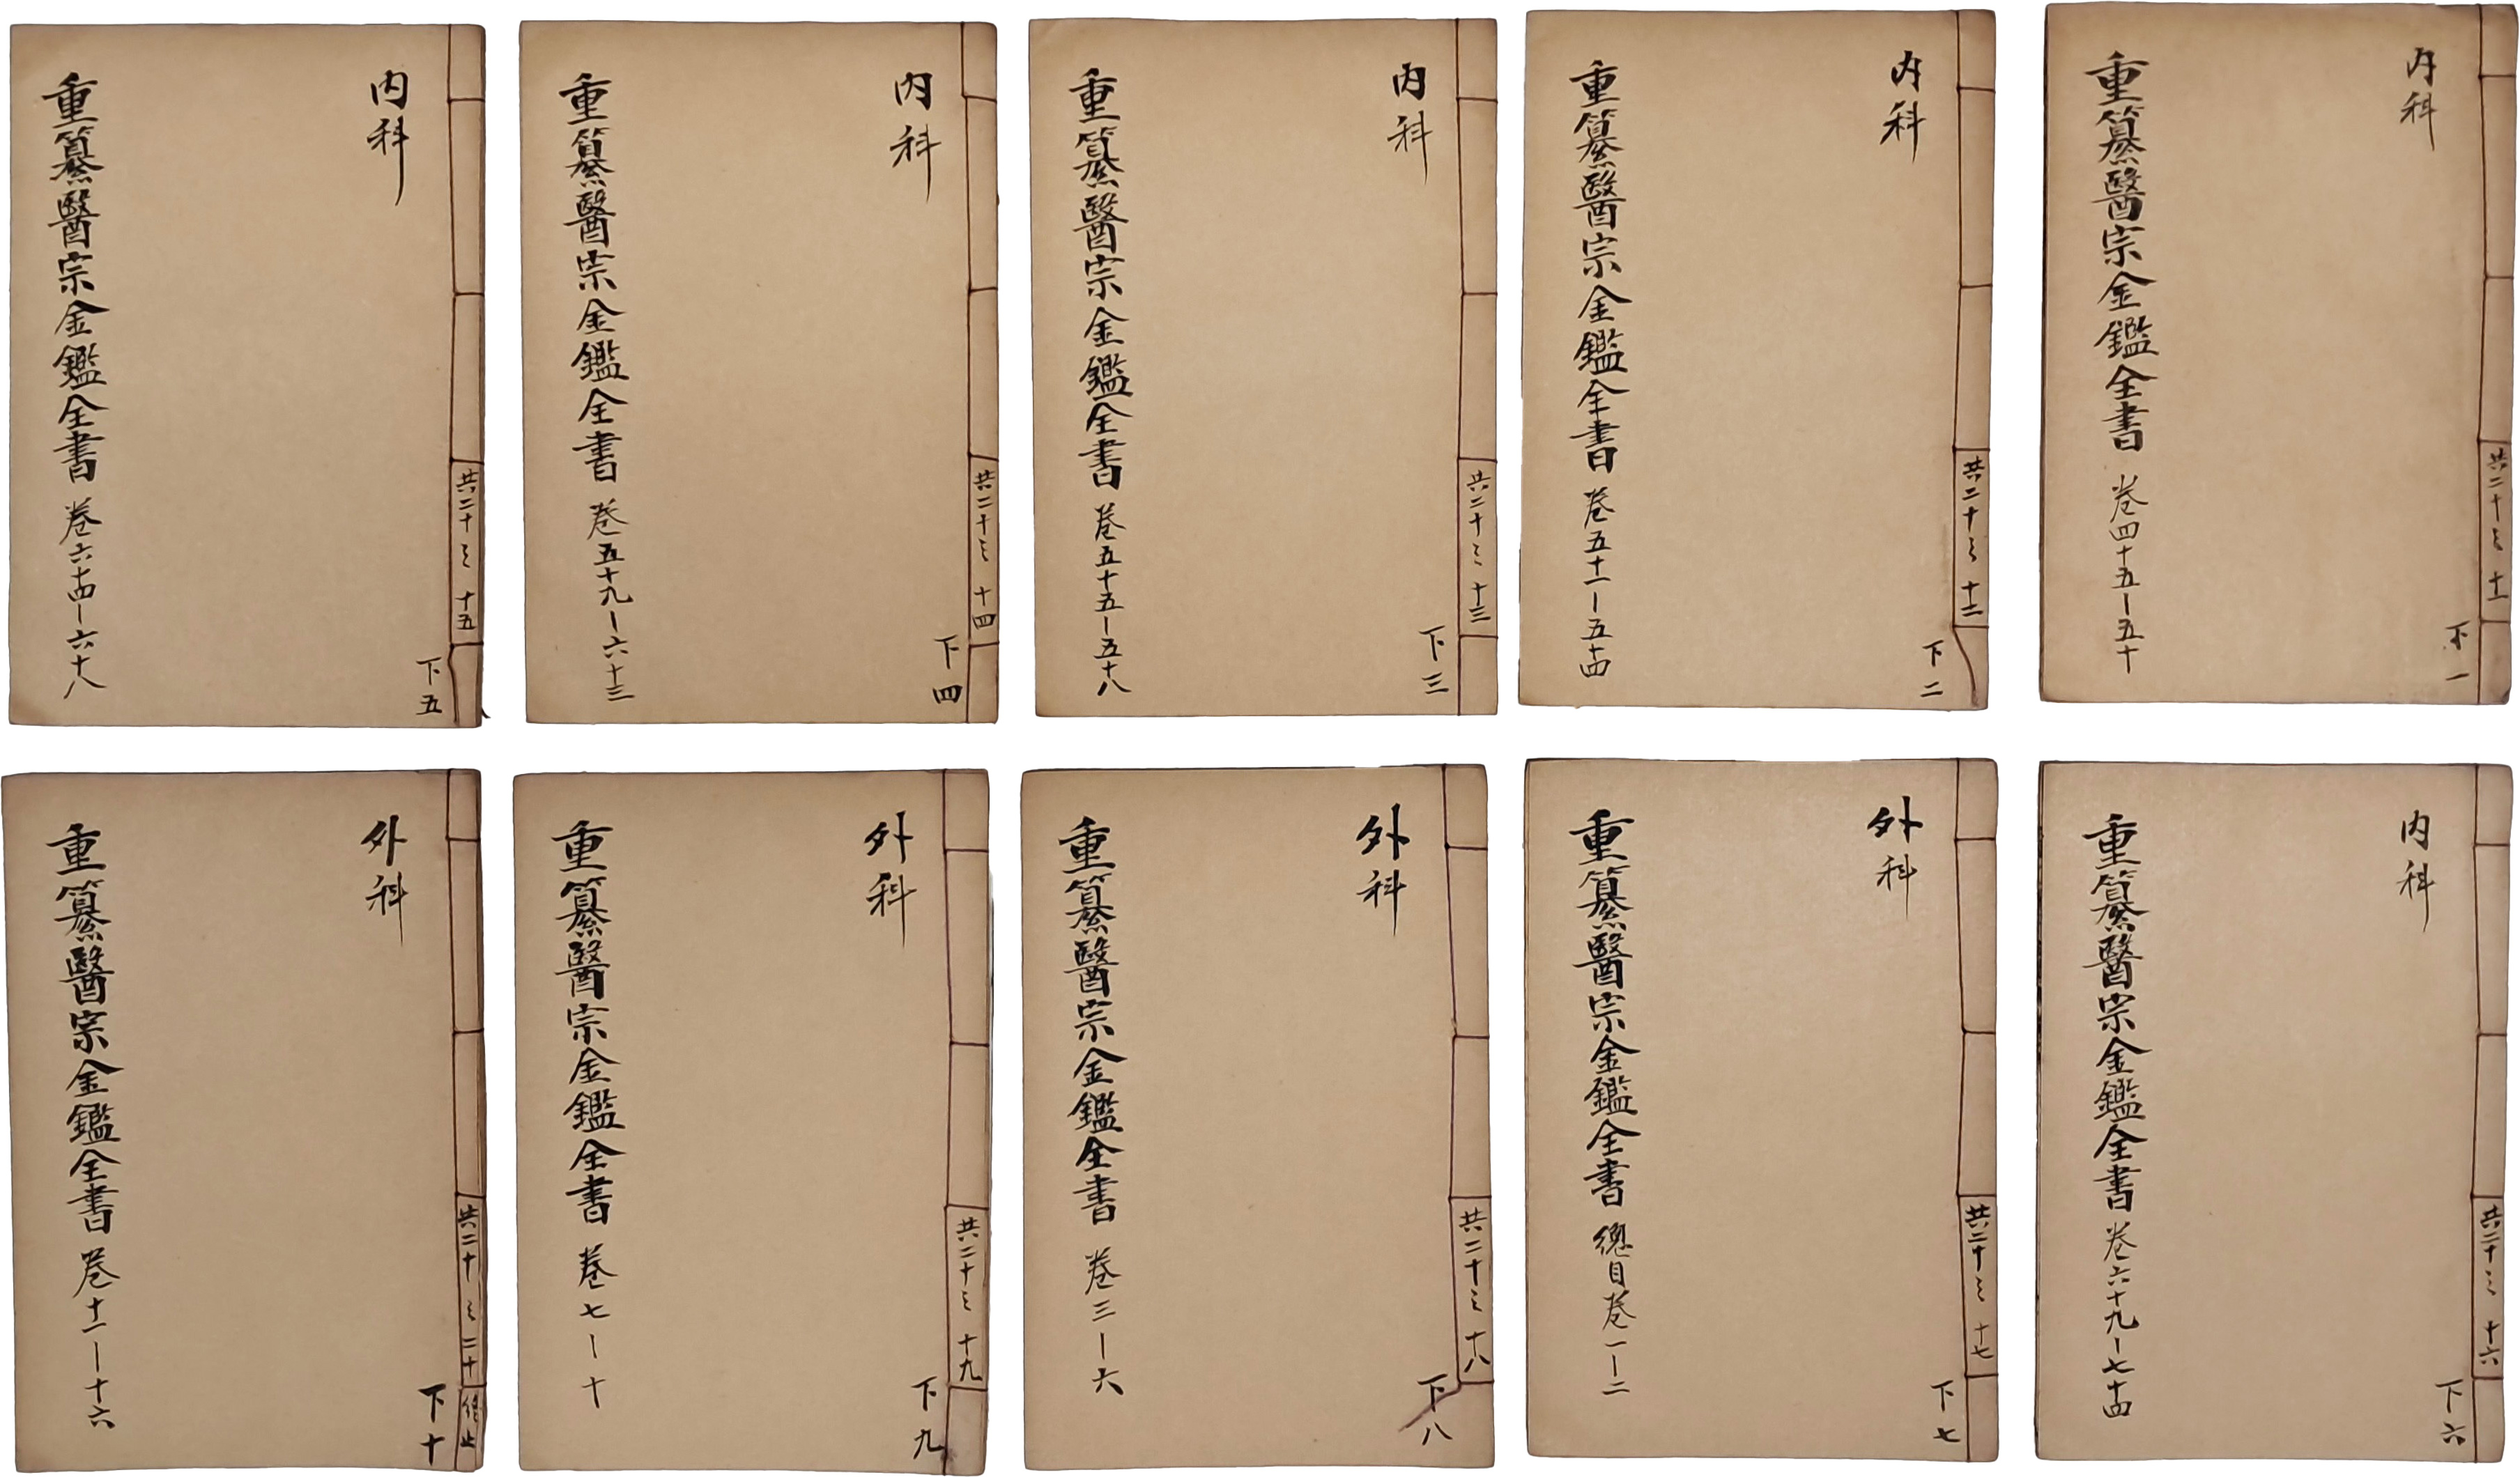 共二十之 十一
内科
下一
重纂醫宗金鑑全書 卷四十五—五十
共二十之 十二
内科
下二
重纂醫宗金鑑全書 卷五十一—五十四
共二十之 十三
内科
下三
重纂醫宗金鑑全書 卷五十五—五十八
共二十之 十四
内科
下四
重纂醫宗金鑑全書 卷五十九—六十三
共二十之 十五
内科
下五
重纂醫宗金鑑全書 卷六十四—六十八
共二十之 十六
内科
下六
重纂醫宗金鑑全書 卷六十九—七十四
共二十之 十七
外科
下七
重纂醫宗金鑑全書 總目卷一—二
共二十之 十八
外科
下八
重纂醫宗金鑑全書 卷三—六
共二十之 十九
外科
下九
重纂醫宗金鑑全書 卷七—十
共二十之 二十 終止
外科
下十
重纂醫宗金鑑全書 卷十一—十六